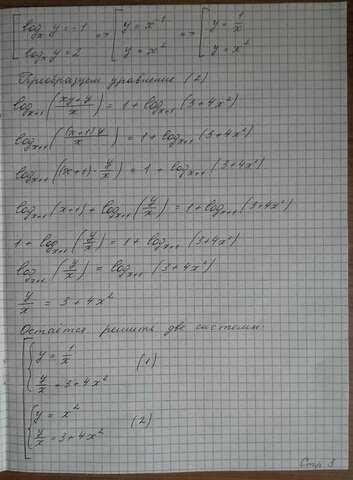 [ log_x y = -1 => [ y = x^-1 => [ y = 1/x
[ log_x y = 2 [ y = x² [ y = x²
Преобразуем уравнение (2)
log_{x+1} ( (xy+y)/x ) = 1 + log_{x+1} (3+4x²)
log_{x+1} ( ((x+1)y)/x ) = 1 + log_{x+1} (3+4x²)
log_{x+1} ( (x+1) · y/x ) = 1 + log_{x+1} (3+4x²)
log_{x+1} (x+1) + log_{x+1} ( y/x ) = 1 + log_{x+1} (3+4x²)
1 + log_{x+1} ( y/x ) = 1 + log_{x+1} (3+4x²)
log_{x+1} ( y/x ) = log_{x+1} (3+4x²)
y/x = 3 + 4x²
Остаётся решить две системы:
{ y = 1/x
(1)
{ y/x = 3+4x²
{ y = x²
(2)
{ y/x = 3+4x²
Стр. 3